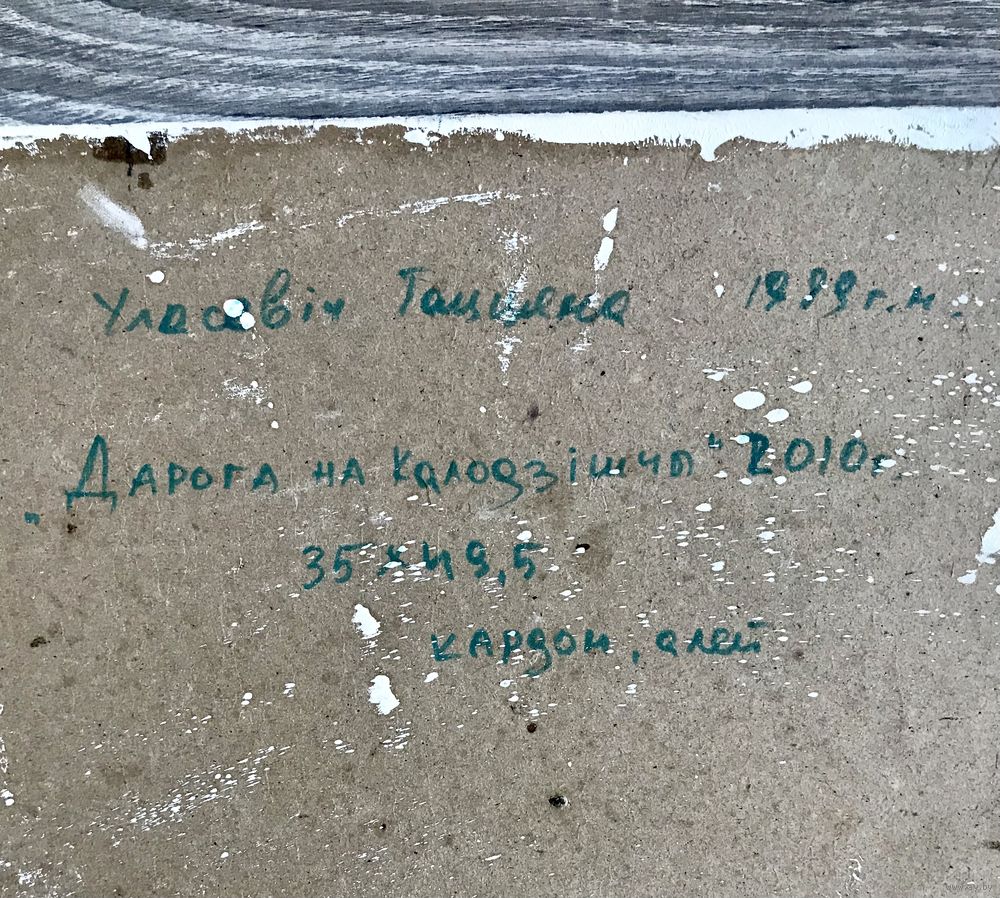 Уласавіч Таццяна 1989 г.н.
"Дарога на Калодзішчы" 2010г.
35×49,5
кардон, алей